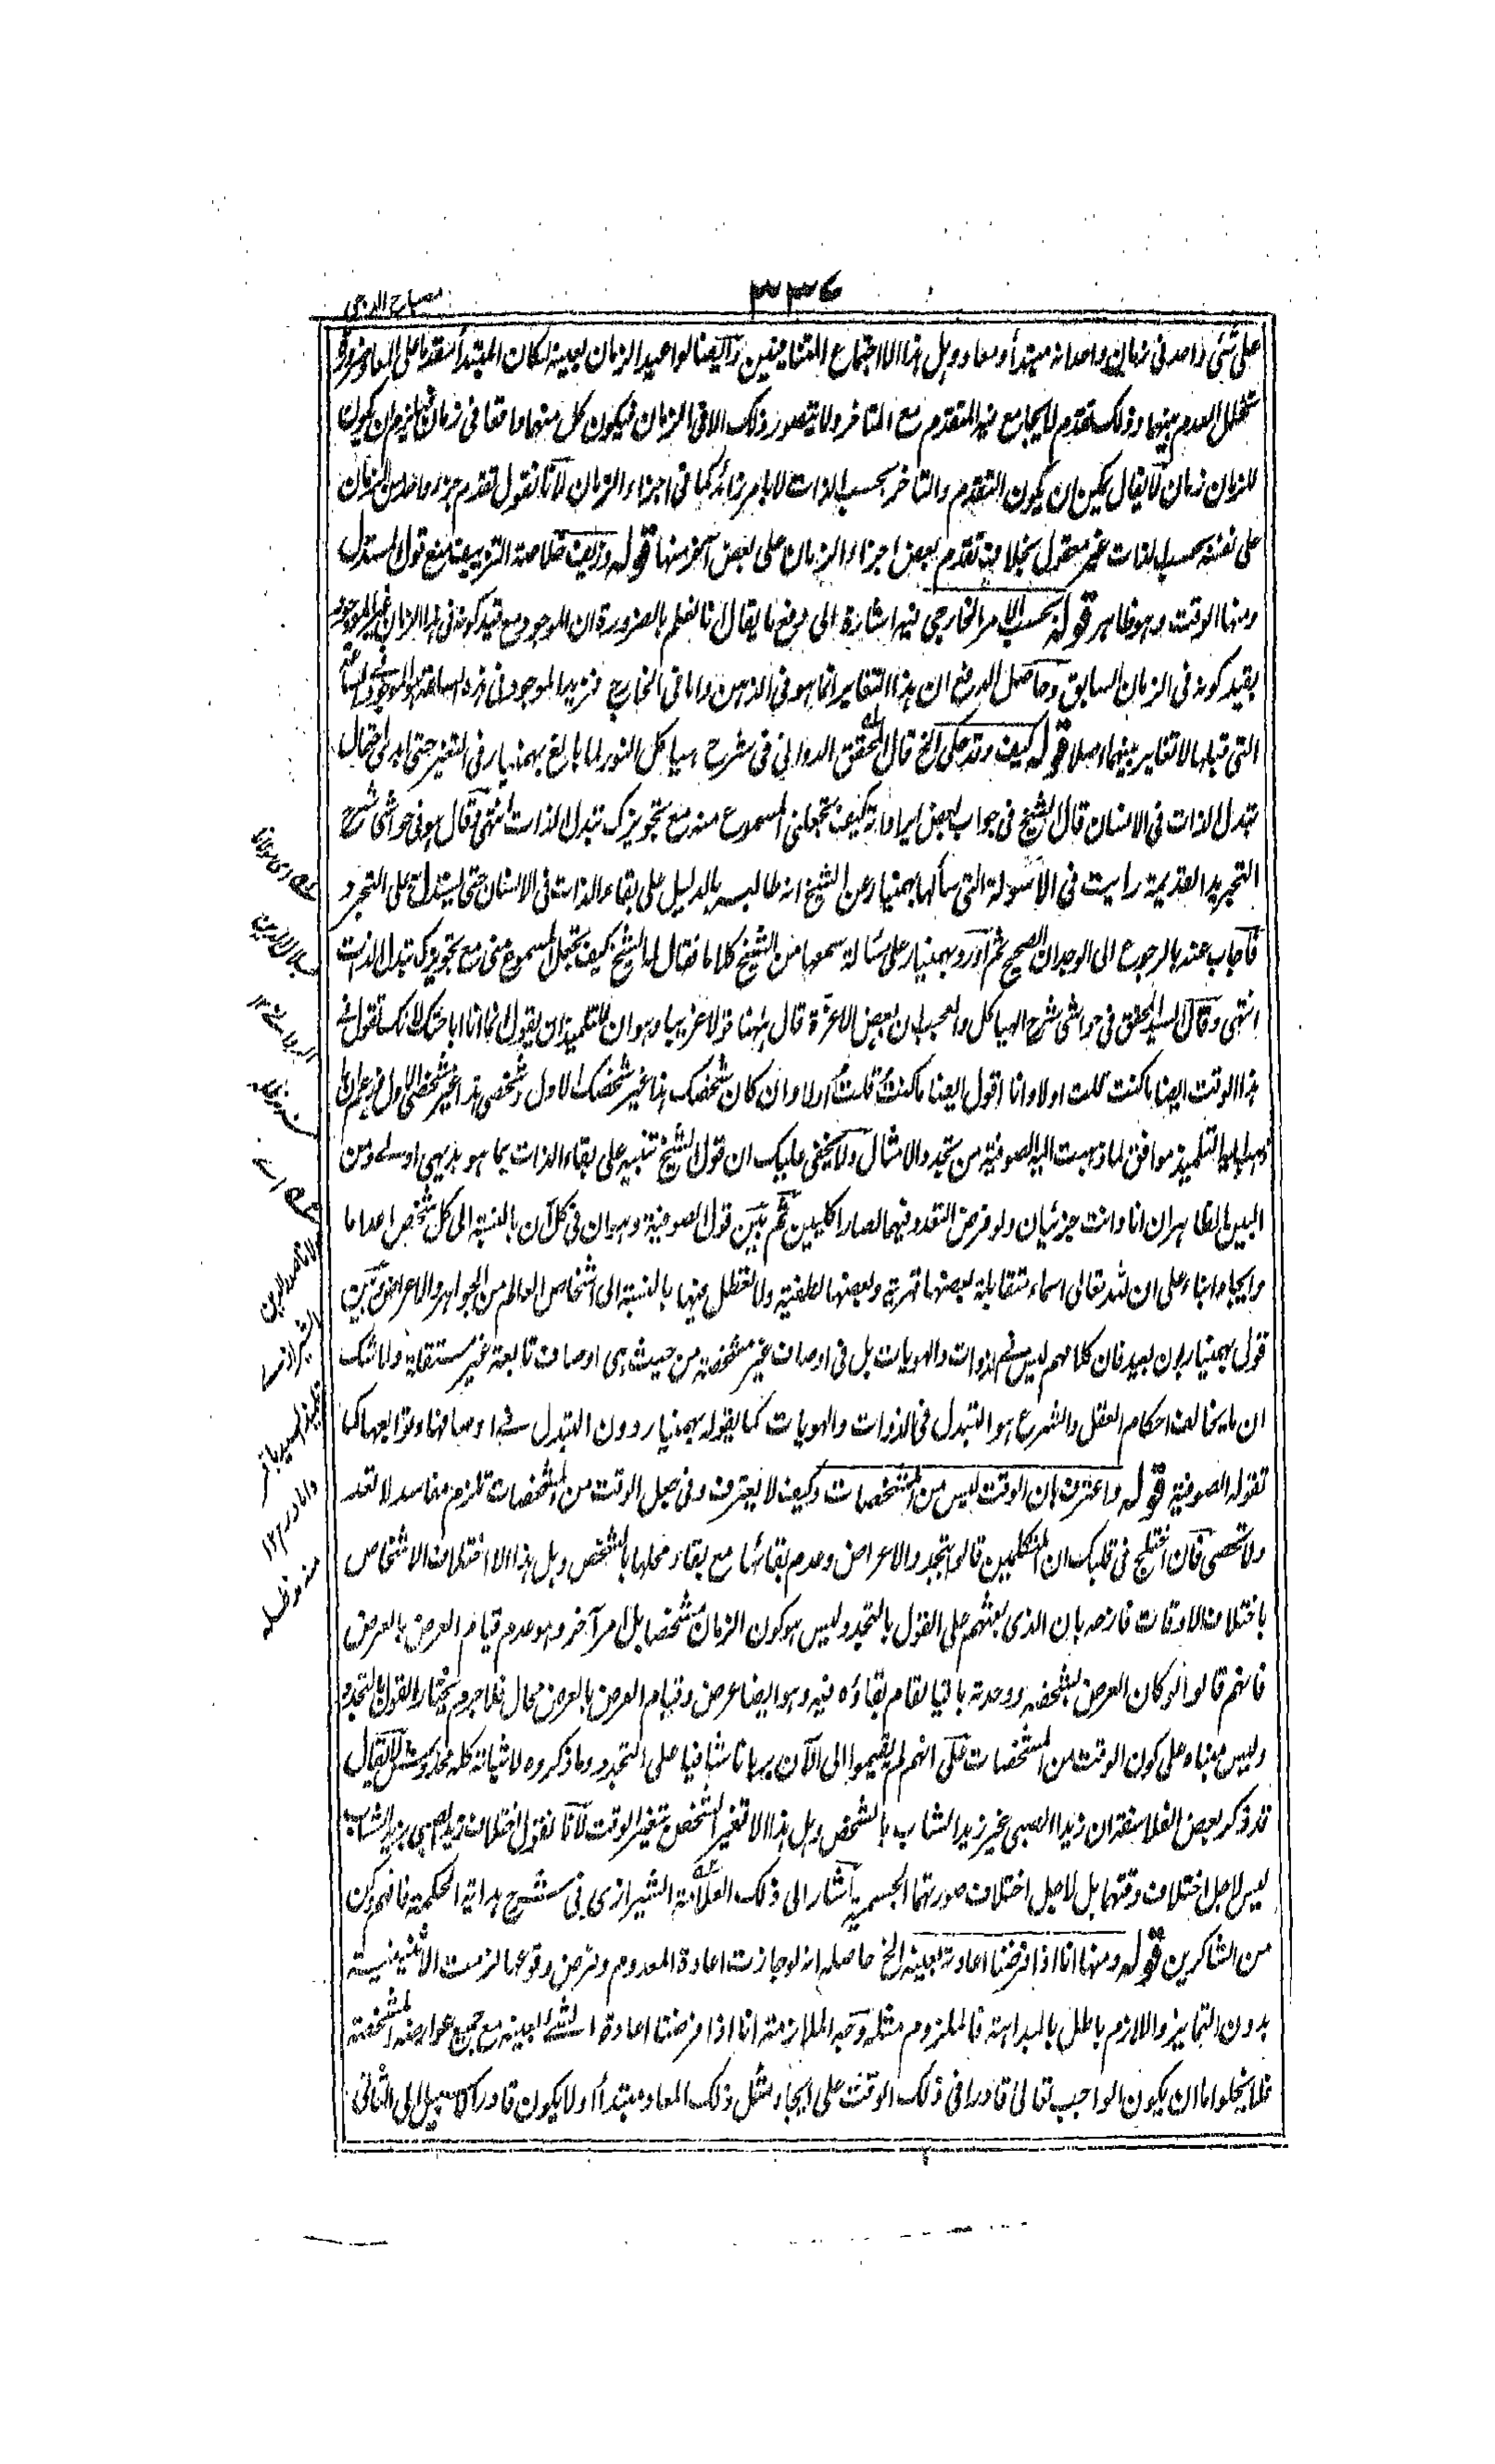 ٣٣٤
مصباح الدجى
على شئ واحد فى زمان واحد انه مبتدأ ومعاد وہل ہذا الا اجتماع المتنافيين وايضا لو اعيد الزمان بعينه لكان المبتدأ متقدما على المعاد ضرورة
تخلل العدم بينہما وذلك تقدم لا يجامع فيه المتقدم مع المتاخر ولا يتصور ذلك الا فى الزمان فيكون كل منہما واقعا فى زمان فيلزم ان يكون
للزمان زمان لا يقال يمكن ان يكون التقدم والتاخر بحسب الذات لا بامر زائد كما فى اجزاء الزمان لانا نقول تقدم جزء واحد من الزمان
على نفسه بحسب الذات غير معقول بخلاف تقدم بعض اجزاء الزمان على بعض آخر منہا قوله وزيف خلاصة التزييف منع قول المستدل
ومنہا الوقت وہو ظاہر قوله بحسب الامر الخارجى فيه اشارة الى دفع ما يقال انا نعلم بالضرورة ان الموجود مع قيد كونه فى ہذا الزمان غير الموجود
بقيد كونه فى الزمان السابق وحاصل الدفع ان ہذا التغاير انما ہو فى الذہن واما فى الخارج فزيد الموجود فى ہذه الساعة ہو الموجود فى الساعة
التى قبلہا لا تغاير بينہما اصلا قوله كيف وقد حكى الخ قال المحقق الدوانى فى شرح ہياكل النور لما بالغ بہمنيار فى التغير حتى ابدى احتمال
تبدل الذات فى الانسان قال الشيخ فى جواب بعض ايراداته كيف تجعلنى المسموع منه مع تجويزك تبدل الذات انتہى وقال ہو فى حواشى شرح
التجريد القديمة رايت فى الاسولة التى سألہا بہمنيار عن الشيخ انه طالبه بالدليل على بقاء الذات فى الانسان حتى يستدل به على التجرد
فاجاب عنه بالرجوع الى الوجدان الصحيح ثم اورد بہمنيار على مسألة سمعہا من الشيخ كلاما فقال له الشيخ كيف تجعل المسموع منى مع تجويزك تبدل الذات
انتہى وقال السيد المحقق فى حواشى شرح الہياكل والعجب ان بعض الاعزة قال ہہنا قولا غريبا وہو ان للتلميذ ان يقول انما انا اباحثك لانك تقول فى
ہذا الوقت ايضا ما كنت قلت اولا وانا اقول ايضا ما كنت قلت اولا وان كان شخصك ہذا غير شخصك الاول وشخصى ہذا غير شخصى الاول فزعم ان ما
ذہب اليه التلميذ موافق لما ذہبت اليه الصوفية من تجدد الامثال ولا يخفى عليك ان قول الشيخ تنبيه على بقاء الذات بما ہو بديہى اولى ومن
البين الظاہر ان انا وانت جزئيان ولو فرض التعدد فيہما لصارا كليين ثم بين قول الصوفية وہو ان فى كل آن بالنسبة الى كل شخص اعداما
وايجادا بناء على ان لله تعالى اسماء متقابلة بعضہا قہرية وبعضہا لطفية ولا تعطل فيہا بالنسبة الى اشخاص العالم من الجواہر والاعراض وبين
قول بہمنيار بون بعيد فان كلامہم ليس فى الذوات والہويات بل فى اوصاف غير مشخصة من حيث ہى اوصاف تابعة غير مستقلة ولا شك
ان ما يخالف احكام العقل والشرع ہو التبدل فى الذوات والہويات كما يقوله بہمنيار دون التبدل فى اوصافہا وتوابعہا كما
تقوله الصوفية قوله واعترف بان الوقت ليس من المشخصات وكيف لا يعترف وفى جعل الوقت من المشخصات تلزم مفاسد لا تعد
ولا تحصى فان اختلج فى قلبك ان المتكلمين قالوا بتجدد الاعراض وعدم بقائہا مع بقاء محلہا بالشخص وہل ہذا الا اختلاف الاشخاص
باختلاف الاوقات فازحه بان الذى بعثہم على القول بالتجدد ليس ہو كون الزمان مشخصا بل امر آخر وہو عدم قيام العرض بالعرض
فانہم قالوا لو كان العرض بشخصه ووحدته باقيا لقام بقاؤه فيه وہو ايضا عرض وقيام العرض بالعرض محال فلا جرم يختار القول بالتجدد
وليس مبناه على كون الوقت من المشخصات على انہم لم يقيموا الى الآن برہانا شافيا على التجدد وما ذكروه لاثباته كله مخدوش لا يقال
قد ذكر بعض الفلاسفة ان زيدا الصبى غير زيد الشاب بالشخص وہل ہذا الا تغير الشخص بتغير الوقت لانا نقول اختلاف زيد الصبى بزيد الشاب
ليس لاجل اختلاف وقتہما بل لاجل اختلاف صورتہما الجسمية اشار الى ذلك العلامة الشيرازى فى شرح ہداية الحكمة فافہم وكن
من الشاكرين قوله ومنہا انا اذا فرضنا اعادته بعينه الخ حاصله انه لو جازت اعادة المعدوم وفرض وقوعہا لزمت الاثنينية
بدون التمايز واللازم باطل بالبداہة فالملزوم مثله وجه الملازمة انا اذا فرضنا اعادة الشئ بعينه مع جميع عوارضه المشخصة
فلا يخلوا اما ان يكون الواجب تعالى قادرا فى ذلك الوقت على ايجاد مثل ذلك المعاد مبتدأ او لا يكون قادرا لا سبيل الى الثانى
مولانا
جلال الدين
الدوانى ١٢
منه مد ظله
مولانا صدر الدين
الشيرازى
تلميذ السيد باقر
داماد ١٢
منه مد ظله